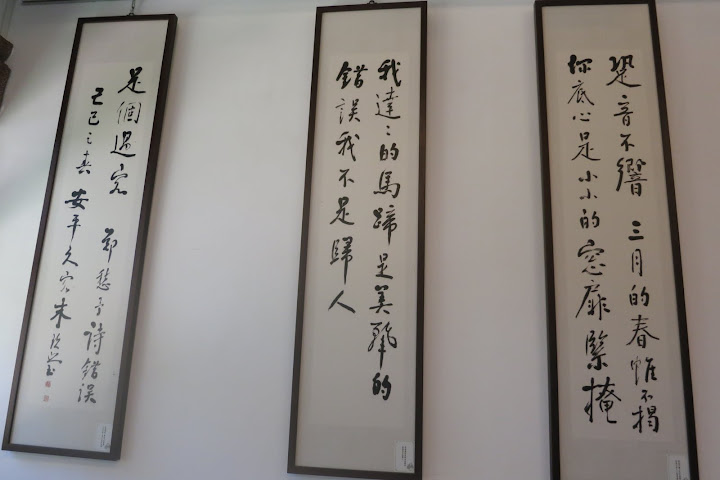 跫音不響 三月的春帷不揭
你底心是小小的窓扉緊掩
我達〻的馬蹄是美麗的
錯誤我不是歸人
是個過客 鄭愁予詩錯誤
己巳之春 安平久客朱玖瑩